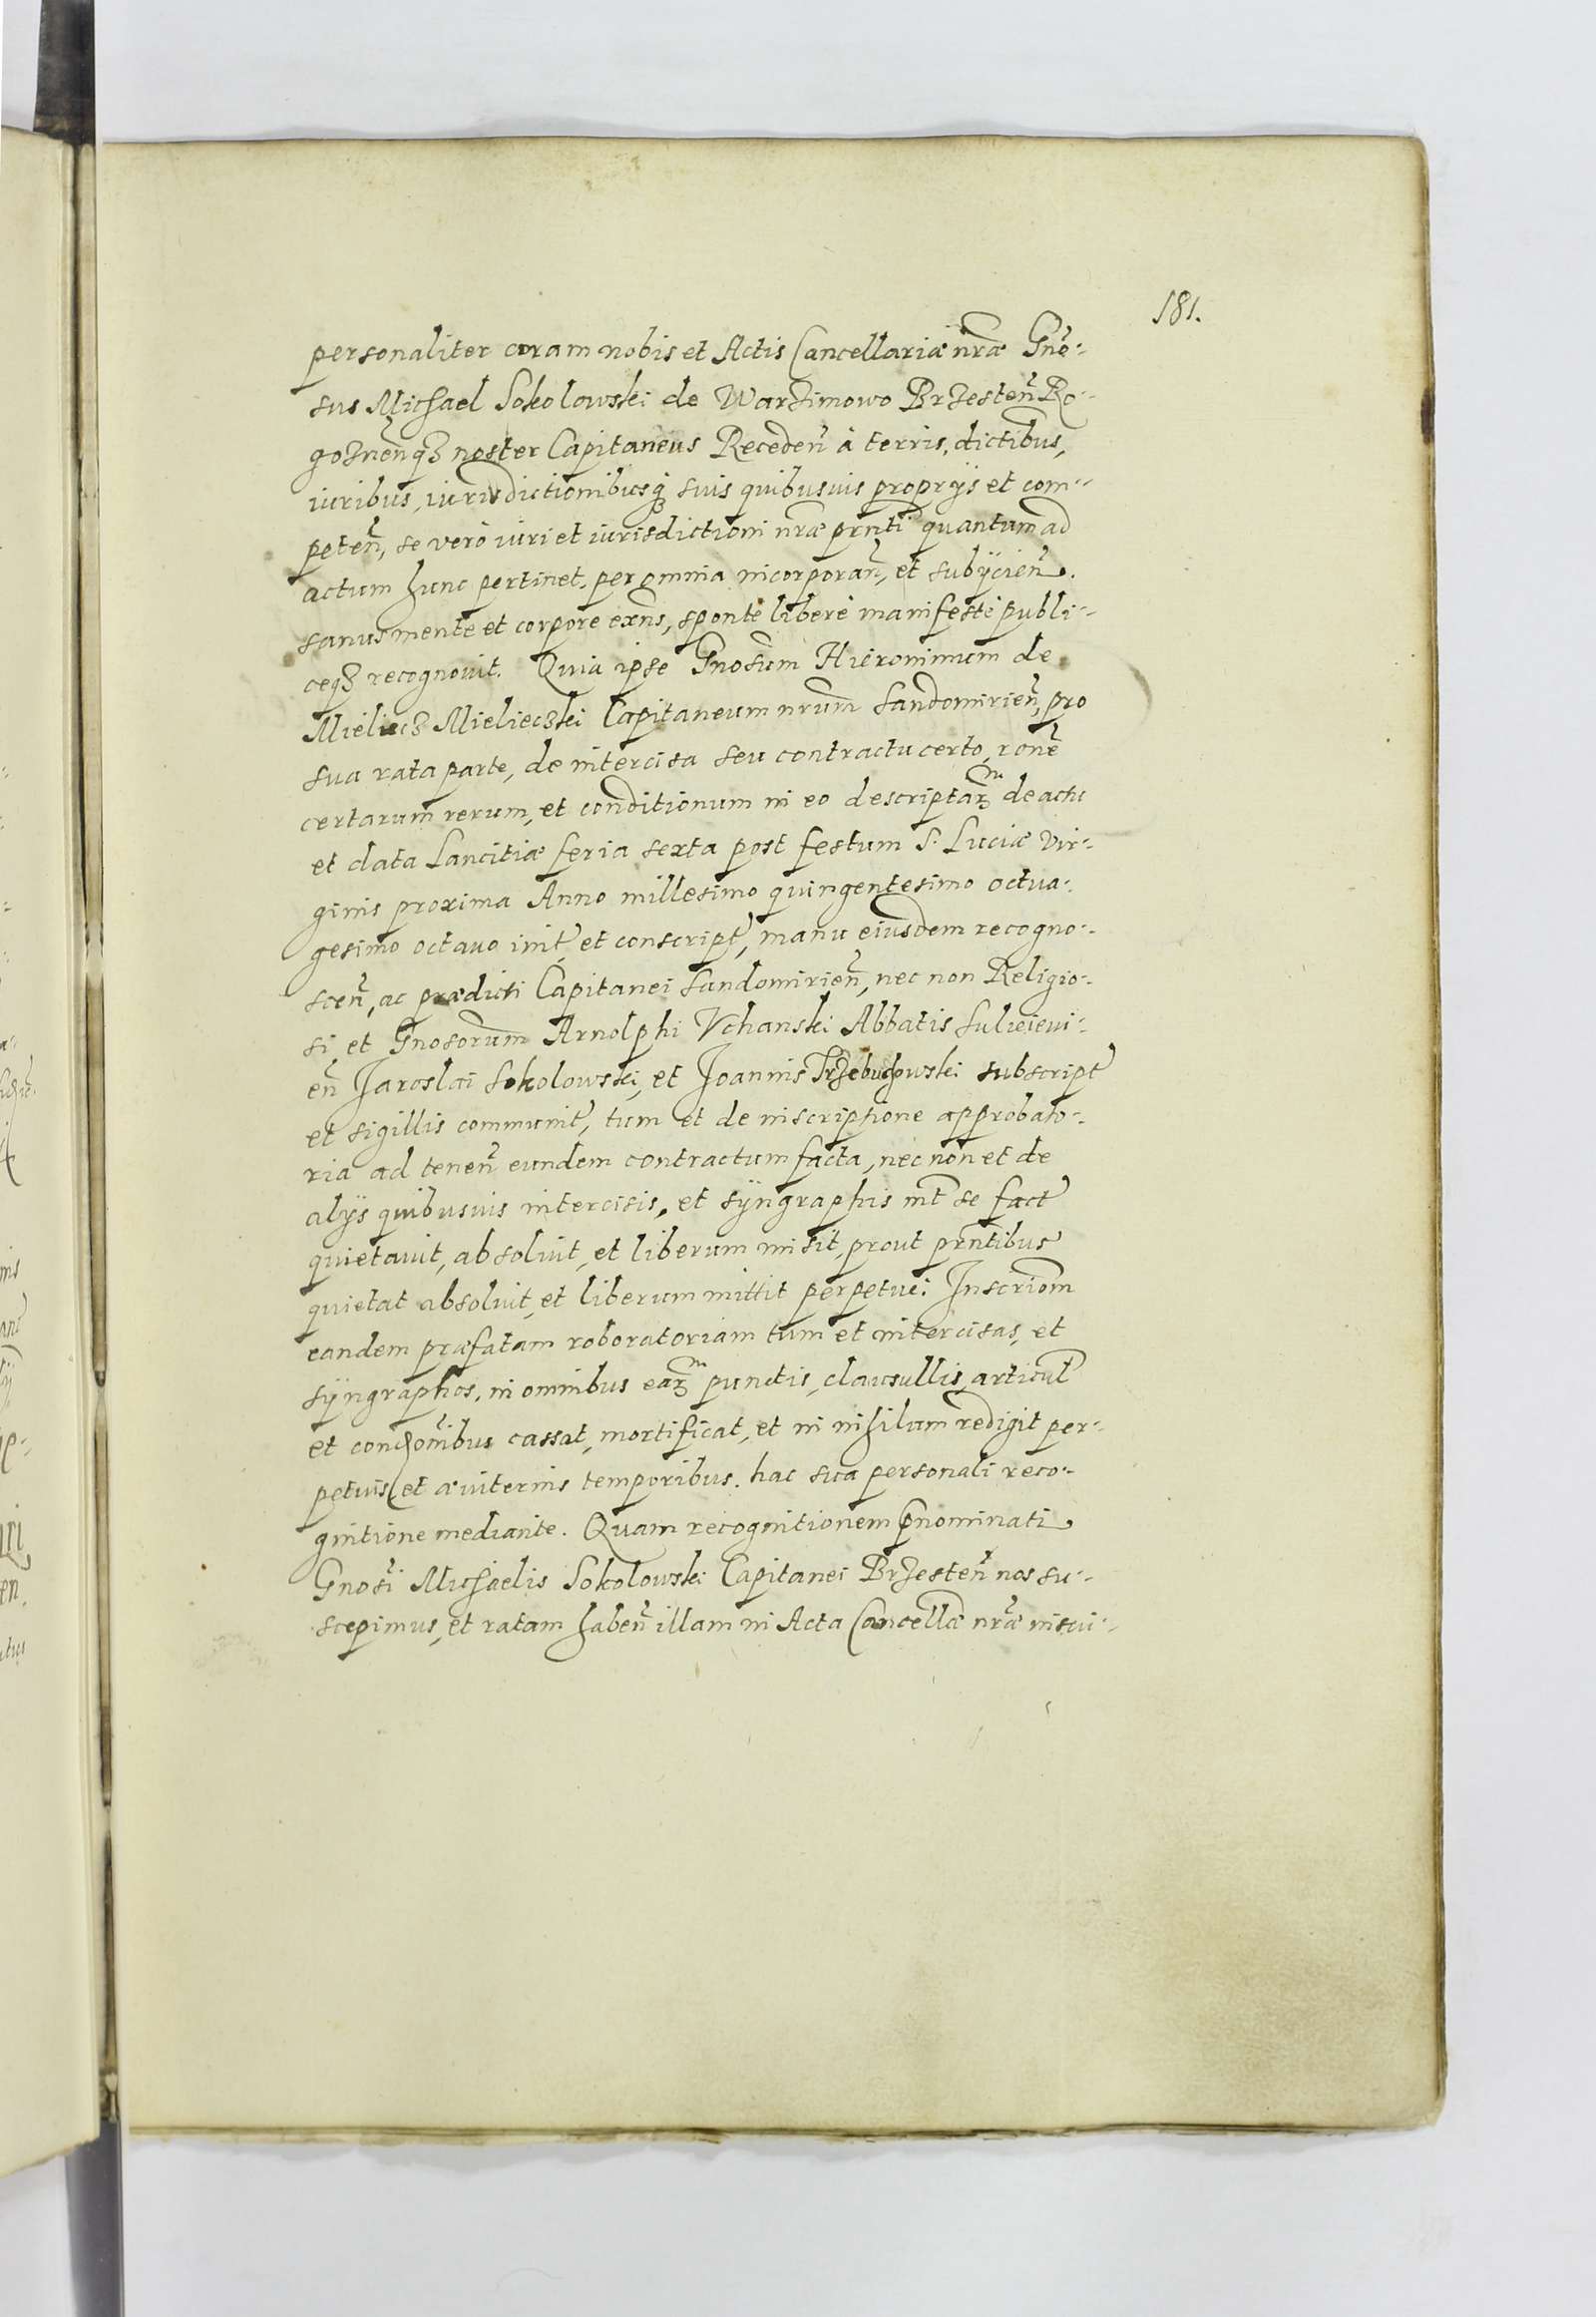 181.
personaliter coram nobis et Actis Cancellariæ nr̃æ Gñe⸗
sus Michael Sokolowski de Warzimowo Brzesteñ Ro⸗
goznenqȝ noster Capitaneus Recedeñ à terris, dictibus,
iuribus, iurisdictionibusqȝ suis quibusuis proprijs et com⸗
peteñ, se verò iuri et iurisdictioni nr̃æ prñti quantum ad
actum hunc pertinet, per omnia incorporañ, et subijcieñ.
sanus mente et corpore exñs, sponte liberè manifestè publi⸗
ceqȝ recognouit. Quia ipse Gnosum Hieronimum de
Mieliecz Mielieczki Capitaneum nrum Sandomirieñ, pro
sua rata parte, de intercisa seu contractu certo, rõne
certarum rerum, et conditionum in eo descriptaꝝ de actu
et data Lancitiæ feria sexta post festum S. Luciæ Vir⸗
ginis proxima Anno millesimo quingentesimo octua⸗
gesimo octauo init̃, et conscript̃, manu eiusdem recogno⸗
sceñ, ac prædicti Capitanei Sandomirieñ, nec non Religio⸗
si, et Gnosorum Arnolphi Vchanski Abbatis Sulieieui⸗
eñ Jaroslai Sokolowski, et Joannis Trzebuchowski subscript̃
et sigillis communit̃, tum et de inscriptione approbato⸗
ria ad teneñ eundem contractum facta, nec non et de
alijs quibusuis intercisis, et sÿngraphis int̃ se fact̃
quietauit, absoluit, et liberum misit, prout prñtibus
quietat absoluit, et liberum mittit perpetuè: Inscriõm
eandem præfatam roboratoriam tum et intercisas, et
sÿngraphos, in omnibus eaꝝ punctis, clausullis, articul̃
et condõnibus cassat, mortificat, et in nihilum redigit per⸗
petuis et æuiternis temporibus. hac sua personali reco⸗
gnitione mediante. Quam recognitionem p̃nominati
Gnosi Michaelis Sokolowski Capitanei Brzesteñ nos su⸗
scepimus, et ratam habeñ illam in Acta Cancellæ nr̃æ inscri⸗